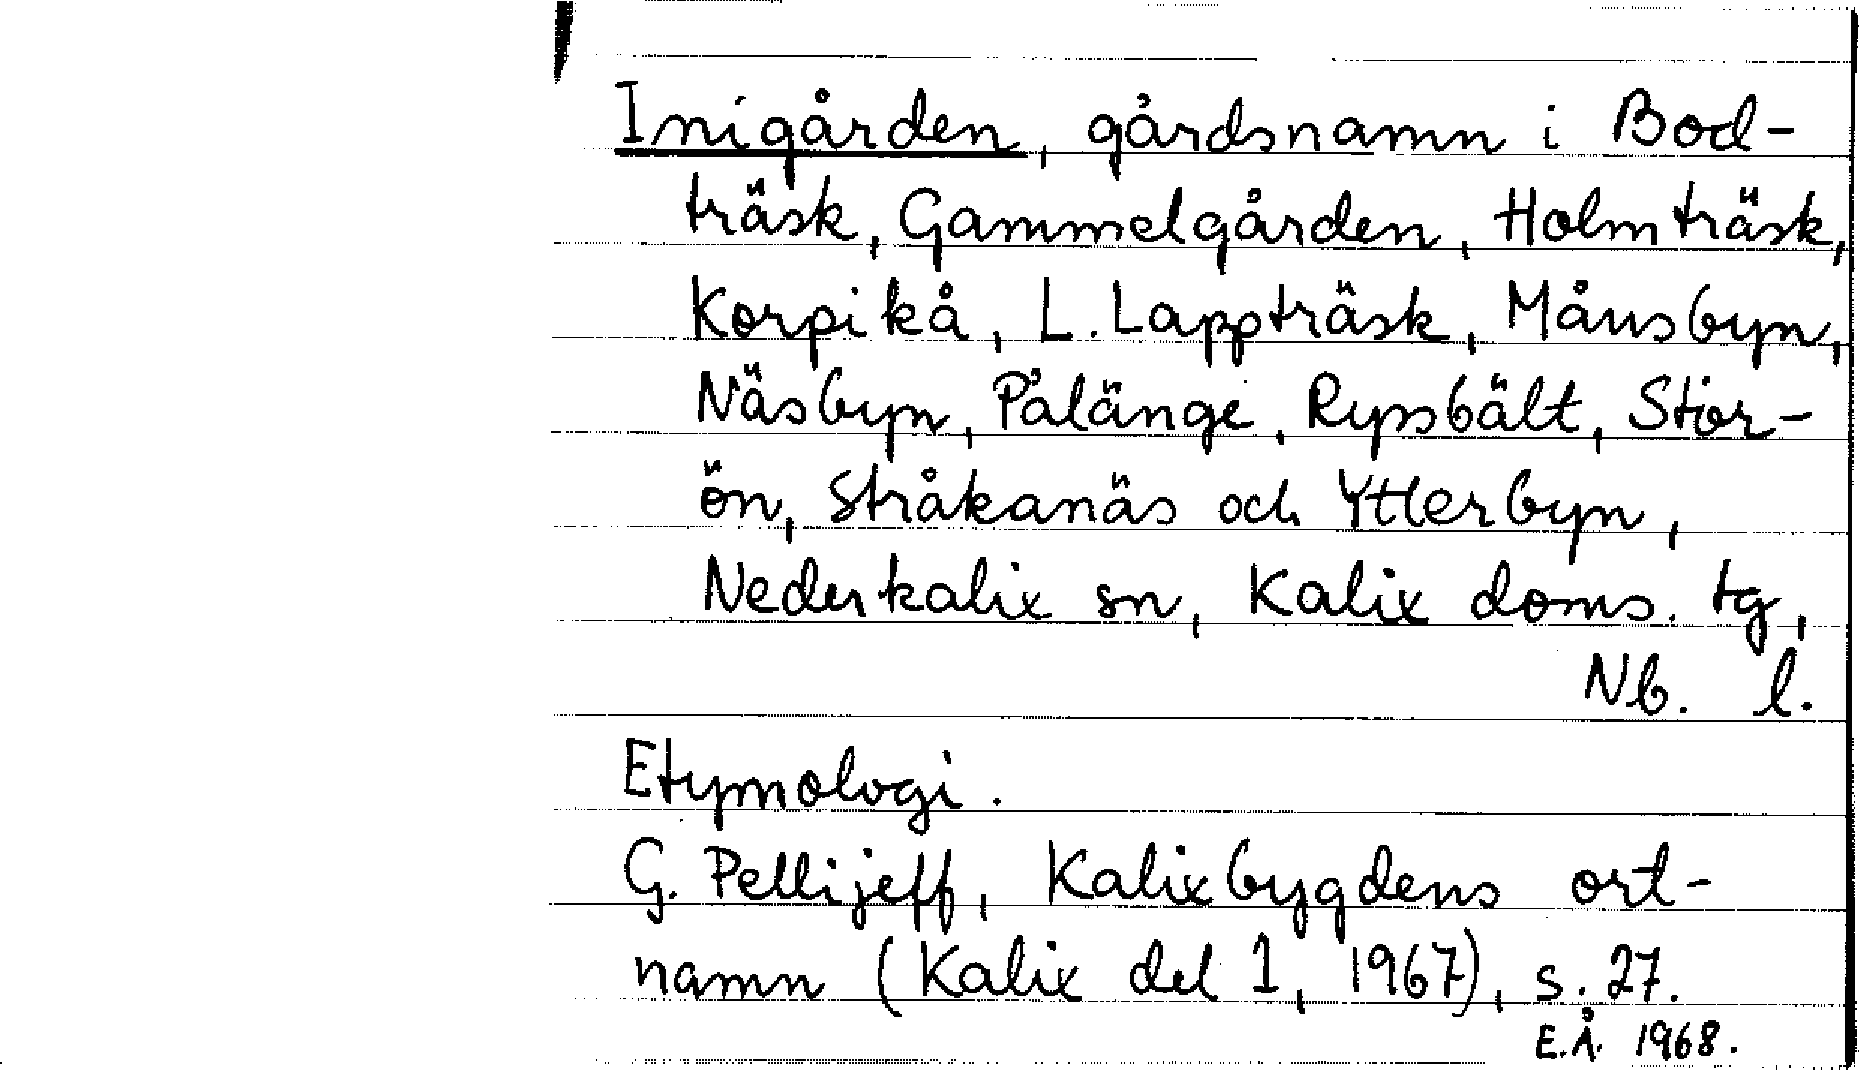 Inigården, gårdsnamn i Bod-
träsk, Gammelgården, Holmträsk,
Korpikå, L. Lappträsk, Månsbyn,
Näsbyn, Pålänge, Ryssbält, Stor-
ön, Stråkanäs och Ytterbyn,
Nederkalix sn, Kalix doms. tg,
Nb. l.
Etymologi.
G. Pellijeff, Kalixbygdens ort-
namn (Kalix del 1, 1967), s. 27.
E.Å. 1968.